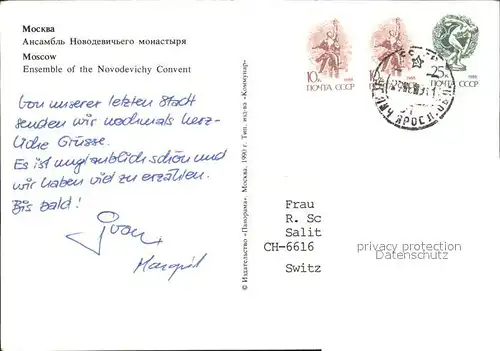 Москва
Ансамбль Новодевичьего монастыря
Moscow
Ensemble of the Novodevichy Convent
Von unserer letzten Stadt
senden wir nochmals herz-
liche Grüsse.
Es ist unglaublich schön und
wir haben viel zu erzählen.
Bis bald!
Margrit
© Издательство «Панорама». Москва. 1990 г. Тип. изд-ва «Коммунар»
10к 1988
ПОЧТА СССР
10к 1988
ПОЧТА СССР
25к 1988
ПОЧТА СССР
Frau
R. Sc
Salit
CH-6616
Switz
privacy protection
Datenschutz